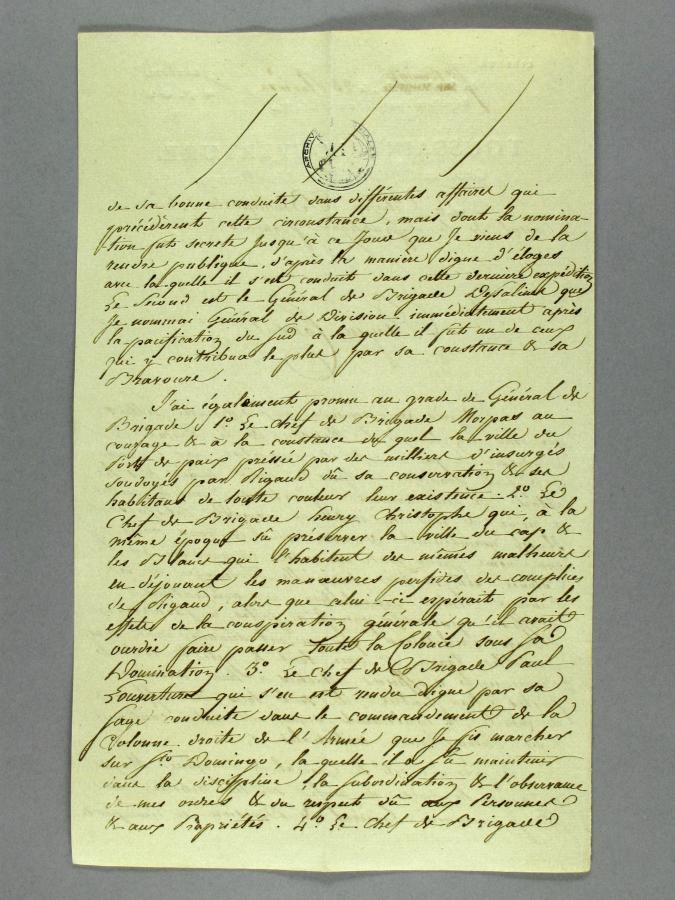 de sa bonne conduite dans différentes affaires qui
précédèrent cette circonstance, mais dont la nomina-
tion fut secrete jusqu'à ce jour que je viens de la
rendre publique, d'après la manière digne d'éloges
avec la quelle il s'est conduit dans cette derniere expédition
Le second est le Général de Brigade Dessalines que
Je nommai Général de Division immédiatement après
la pacification du Sud à la quelle il fut un de ceux
qui y contribua le plus par sa constance & sa
Bravoure.
J'ai également promu au grade de Général de
Brigade 1.º Le chef de Brigade Morpas au
courage & à la constance du quel la ville du
Port de paix préssée par des milliers d'insurgés
soudoyés par Rigaud dû sa conservation & ses
habitans de toute couleur leur existence. 2.º Le
Chef de Brigade henry Christophe qui, à la
même époque sû préserver la ville du cap &
les Blancs qui l'habitent des mêmes malheurs
en déjouant les manœuvres perfides des complices
de Rigaud, alors que celui-ci espérait par les
effets de la conspiration générale qu'il avait
ourdie faire passer toute la Colonie sous sa
Domination. 3.º Le Chef de Brigade Paul
Louverture qui s'en est rendu digne par sa
sage conduite dans le commandement de la
Colonne droite de l'Armée que je fis marcher
sur Sto Domingo, la quelle il a sû maintenir
dans la discipline, la subordination & l'observance
de mes ordres & du respect dû aux Personnes
& aux Propriétés. 4.º Le Chef de Brigade